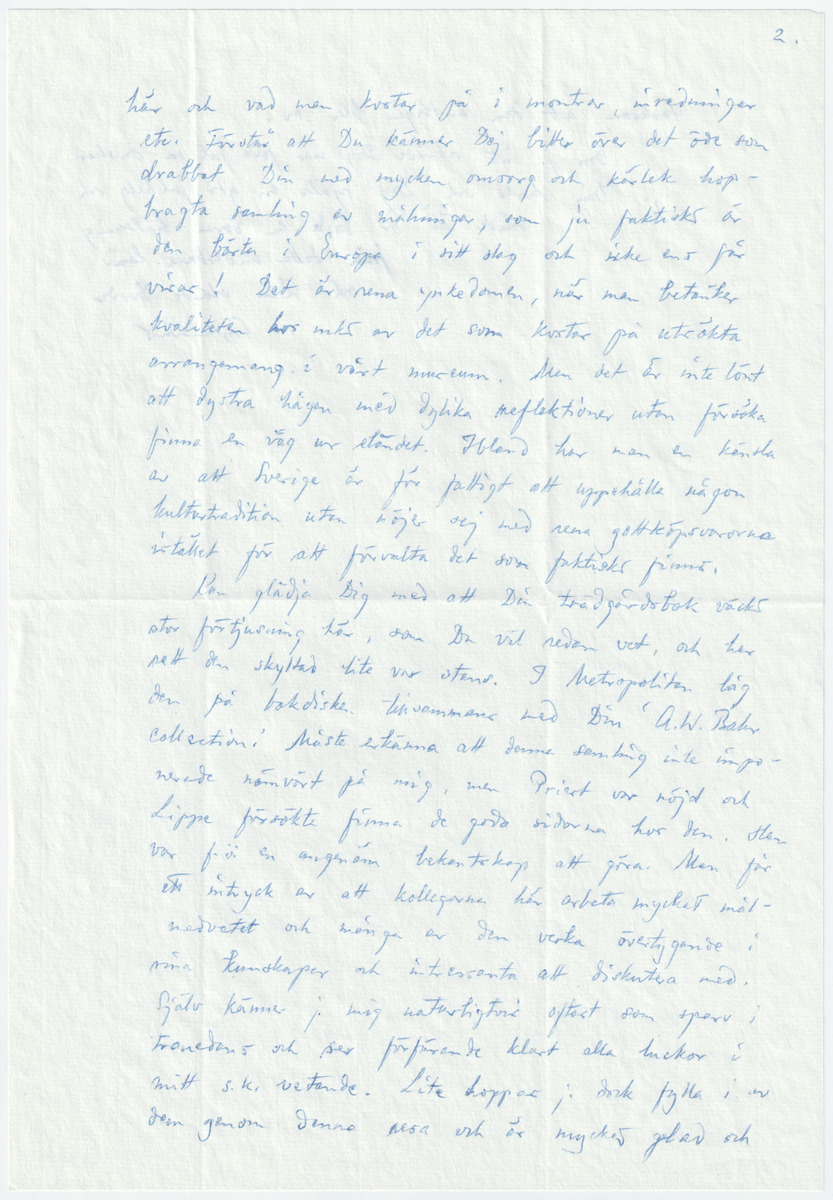 2.
här och vad man kostar på i montrar, inredningar
etc. Förstår att Du känner Dej bitter över det öde som
drabbat Din med mycken omsorg och kärlek hop-
bragta samling av målningar, som ju faktiskt är
den bästa i Europa i sitt slag och icke ens får
visas! Det är rena ynkedomen, när man betänker
kvaliteten hos mkt av det som kostar på utsökta
arrangemang i vårt museum. Men det är inte lönt
att dystra hägen med dylika reflektioner utan försöka
finna en väg ur eländet. Ibland har man en känsla
av att Sverige är för fattigt att uppehålla någon
kulturtradition utan nöjer sej med rena gottköpsvarorna
istället för att förvalta det som faktiskt finns.
Kan glädja Dig med att Din trädgårdsbok väckt
stor förtjusning här, som Du väl redan vet, och har
sett den skyltad lite var stans. I Metropolitan låg
den på bokdisken tillsammans med Din "A.W. Bahr
collection". Måste erkänna att denna samling inte impo-
nerade nämnvärt på mig, men Priest var nöjd och
Lippe försökte finna de goda sidorna hos den. Han
var f.ö. en angenäm bekantskap att göra. Man får
ett intryck av att kollegorna här arbeta mycket mål-
medvetet och många av dem verka övertygande i
sina kunskaper och intressanta att diskutera med.
Själv känner j. mig naturligtvis oftast som sparv i
tranedans och ser förfärande klart alla luckor i
mitt s.k. vetande. Lite hoppas j. dock fylla i av
dem genom denna resa och är mycket glad och